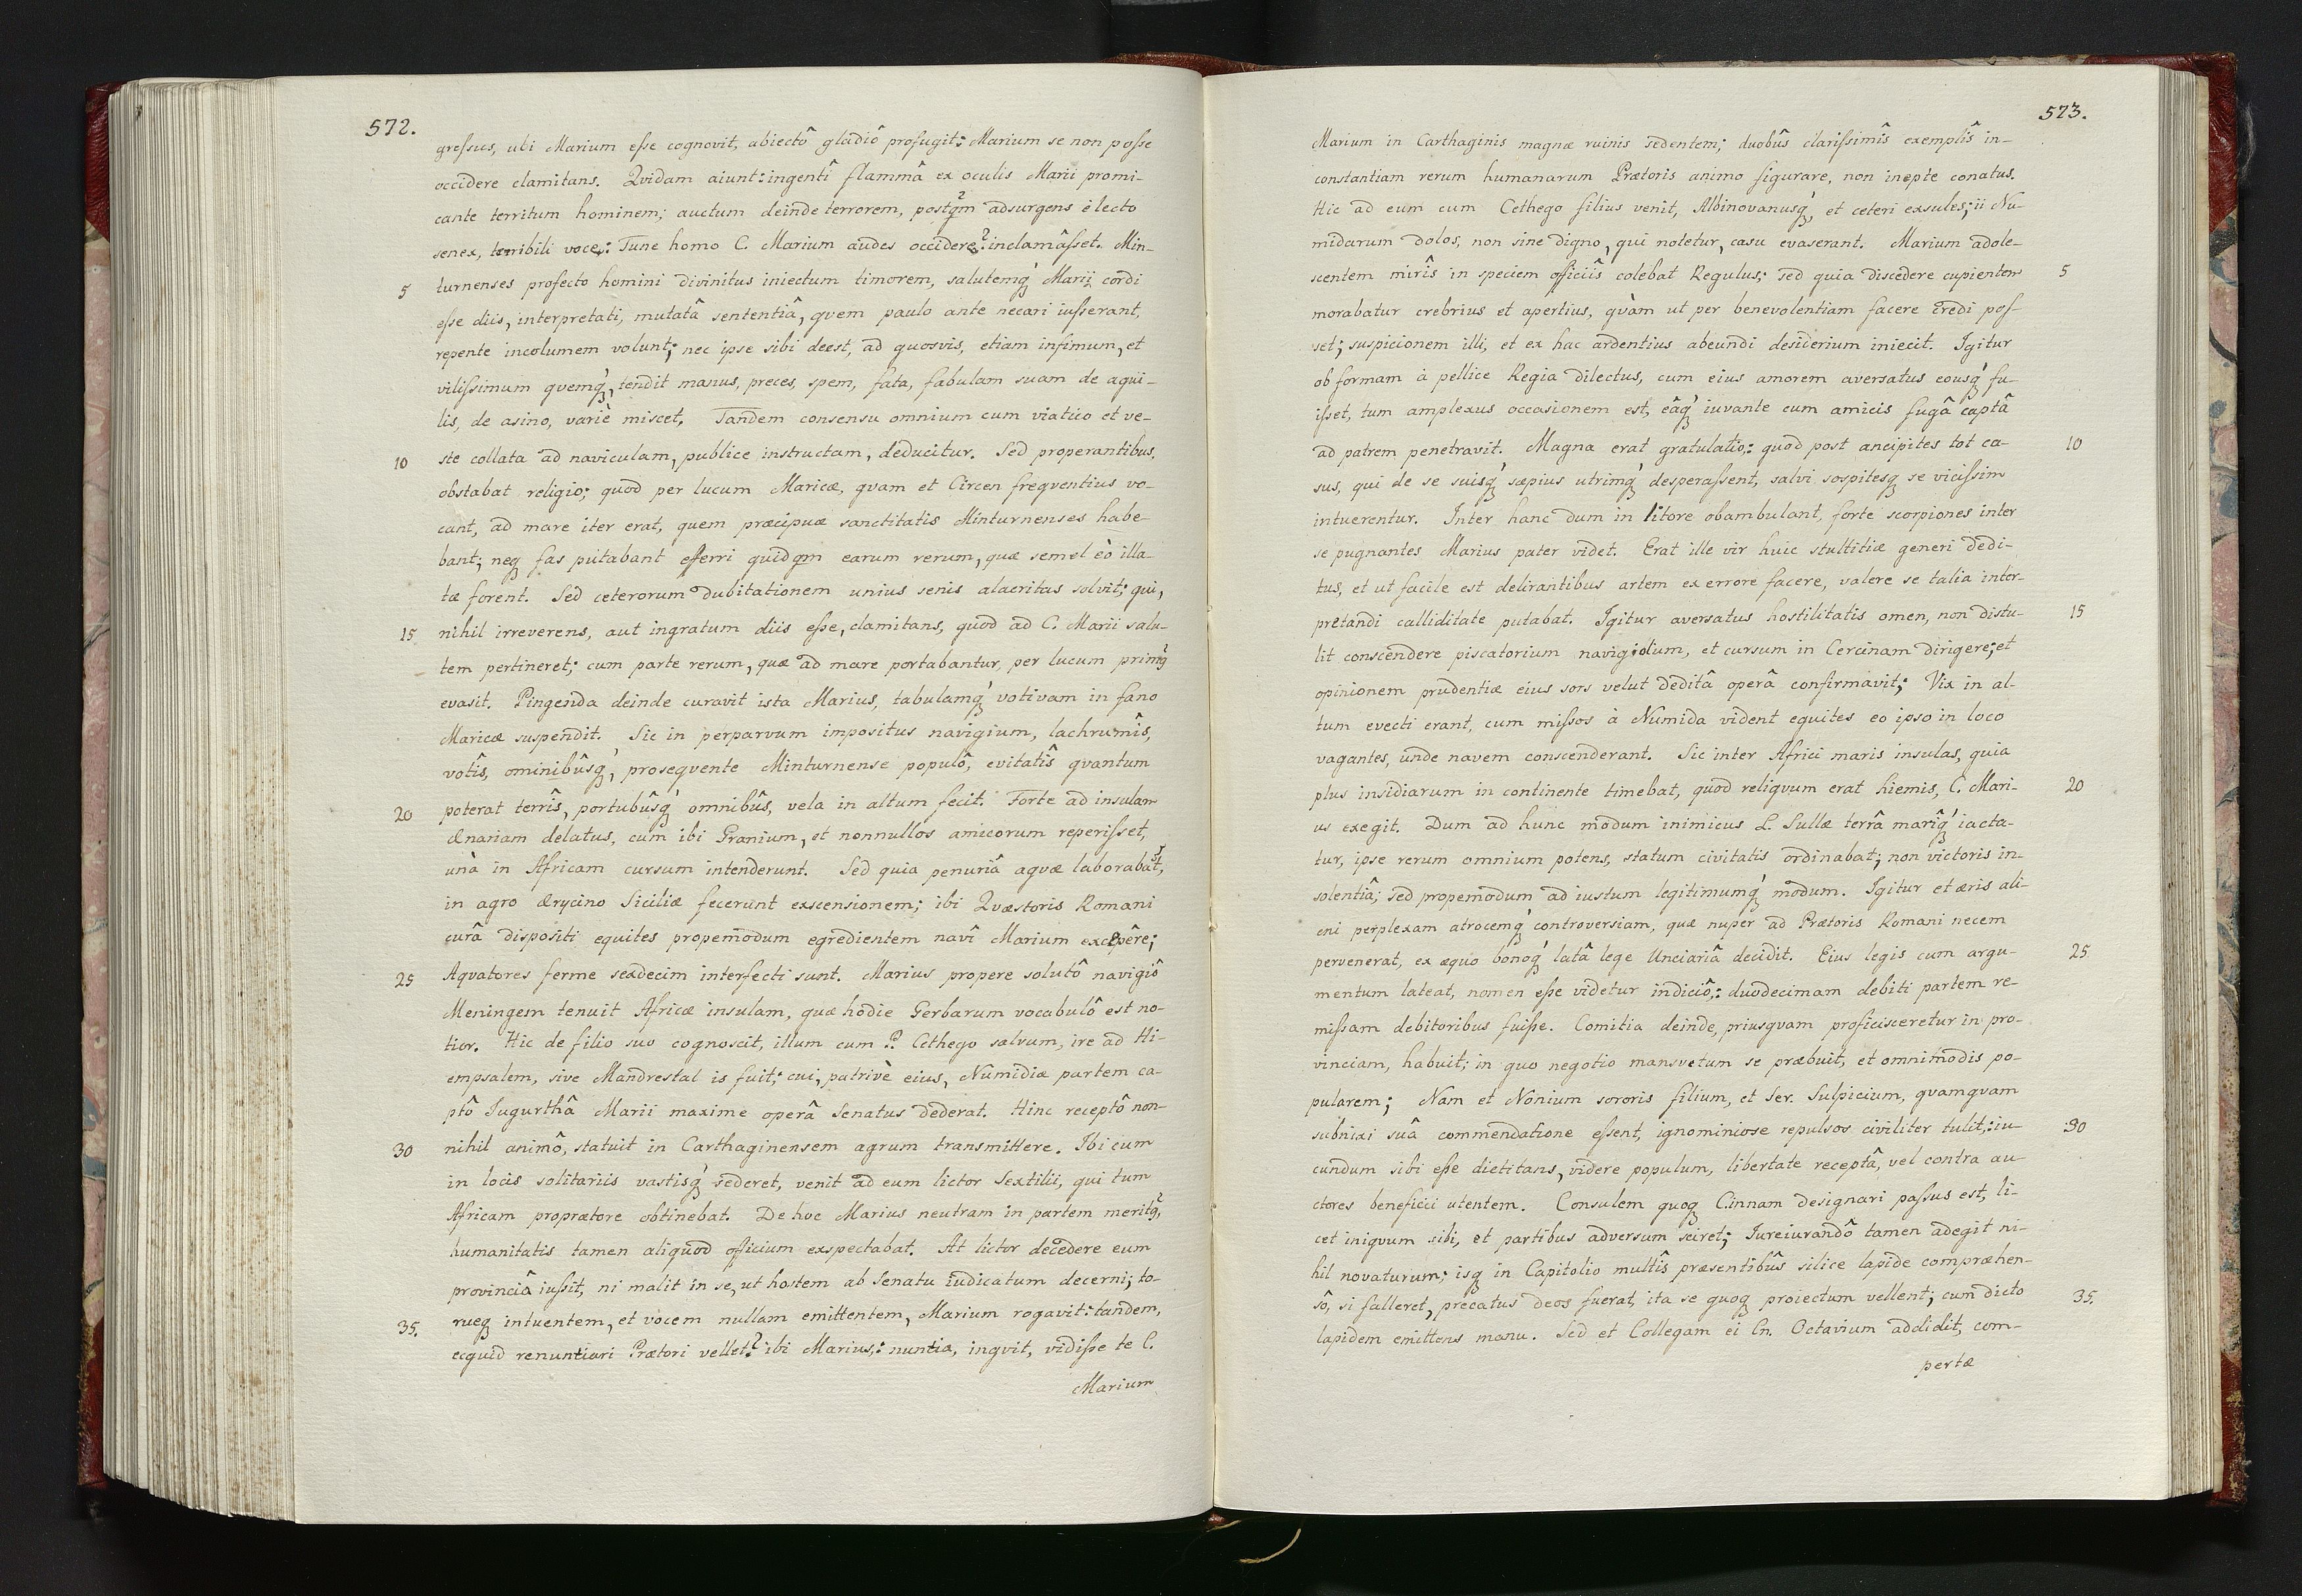 572.
gressus, ubi Marium esse cognovit, abiectô gladiô profugit: Marium se non posse
occidere clamitans. Qvidam aiunt: ingentî flammâ ex oculis Marii promi-
cante territum hominem; auctum deinde terrorem, postqm̃ adsurgens è lecto
senex, terribili voce: Tune homo C. Marium audes occidere? inclamâsset. Min-
5 turnenses profecto homini divinitus iniectum timorem, salutemq́ Marii cordi
esse diis, interpretati, mutatâ sententiâ, qvem paulo ante necari iusserant,
repente incolumem volunt; nec ipse sibi deest, ad quosvis, etiam infimum, et
vilissimum qvemq́, tendit manus, preces, spem, fata, fabulam suam de aqui-
lis, de asino, variè miscet. Tandem consensu omnium cum viatico et ve-
10 ste collata ad naviculam, publice instructam, deducitur. Sed properantibus
obstabat religio; quod per lucum Maricæ, qvam et Circen freqventius vo-
cant, ad mare iter erat, quem præcipuæ sanctitatis Minturnenses habe-
bant; neq fas putabant efferri quidqm earum rerum, quæ semel eò illa-
tæ forent. Sed ceterorum dubitationem unius senis alacritas solvit; qui,
15 nihil irreverens, aut ingratum diis esse, clamitans, quod ad C. Marii salu-
tem pertineret; cum parte rerum, quæ ad mare portabantur, per lucum prim9
evasit. Pingenda deinde curavit ista Marius, tabulamq́ votivam in fano
Maricæ suspendit. Sic in perparvum impositus navigium, lachrumîs,
votîs, ominibûsq́, proseqvente Minturnense populô, evitatîs qvantum
20 poterat terrîs, portubûsq́ omnibûs, vela in altum fecit. Forte ad insulam
Ænariam delatus, cum ibi Granium, et nonnullos amicorum reperisset,
unà in Africam cursum intenderunt. Sed quia penuriâ aqvæ laborabat,
in agro Ærycino Siciliæ fecerunt exscensionem; ibi Qvæstoris Romani
curâ dispositi equites propemodum egredientem navî Marium excepêre;
25 Aqvatores ferme sexdecim interfecti sunt. Marius propere solutô navigiô
Meningem tenuit Africæ insulam, quæ hodie Gerbarum vocabulô est no-
tior. Hic de filio suo cognoscit, illum cum P. Cethego salvum, ire ad Hi-
empsalem, sive Mandrestal is fuit; cui, patrivè eius, Numidiæ partem ca-
ptô Iugurthâ Marii maxime operâ Senatus dederat. Hinc receptô non-
30 nihil animô, statuit in Carthaginensem agrum transmittere. Ibi cum
in locis solitariis vastisq́ sederet, venit ad eum lictor Sextilii, qui tum
Africam proprætore obtinebat. De hoc Marius neutram in partem merit9,
humanitatis tamen aliquod officium exspectabat. At lictor decedere eum
provinciâ iussit, ni malit in se, ut hostem ab Senatu iudicatum decerni; to-
35. rueq intuentem, et vocem nullam emittentem, Marium rogavit: tandem,
ecquid renuntiari Prætori vellet? ibi Marius,: nuntia, inqvit, vidisse te C.
Marium
573.
Marium in Carthaginis magnæ ruinis sedentem; duobûs clarissimîs exemplîs in-
constantiam rerum humanarum Prætoris animo figurare, non inepte conatus.
Hic ad eum cum Cethego filius venit, Albinovanusq́, et ceteri exsules; ii Nu-
midarum dolos, non sine digno, qui notetur, casu evaserant. Marium adole-
scentem mirîs in speciem officiîs colebat Regulus; sed quia discedere cupientem 5
morabatur crebrius et apertius, qvàm ut per benevolentiam facere credi pos-
set; suspicionem illi, et ex hac ardentius abeundi desiderium iniecit. Igitur
ob formam à pellice Regia dilectus, cum eius amorem aversatus eousq́ fu-
isset, tum amplexus occasionem est, eâq́ iuvante cum amicis fugâ captâ
ad patrem penetravit. Magna erat gratulatio,: quod post ancipites tot ca- 10
sus, qui de se suisq́ sæpius utrimq́ desperassent, salvi sospitesq se vicissim
intuerentur. Inter hanc dum in litore obambulant, forte scorpiones inter
se pugnantes Marius pater videt. Erat ille vir huic stultitiæ generi dedi-
tus, et ut facile est delirantibus artem ex errore facere, valere se talia inter-
pretandi calliditate putabat. Igitur aversatus hostilitatis omen, non distu- 15
lit conscendere piscatorium navigiolum, et cursum in Cercinam dirigere; et
opinionem prudentiæ eius sors velut deditâ operâ confirmavit; Vix in al-
tum evecti erant, cum missos à Numida vident equites eo ipso in loco
vagantes, unde navem conscenderant. Sic inter Africi maris insulas, quia
plus insidiarum in continente timebat, quod reliqvum erat hiemis, C. Mari- 20
us exegit. Dum ad hunc modum inimicus L. Sullæ terrâ marîq́ iacta-
tur, ipse rerum omnium potens, statum civitatis ordinabat; non victoris in-
solentiâ; sed propemodum ad iustum legitimumq́ modum. Igitur et æris ali-
eni perplexam atrocemq́ controversiam, quæ nuper ad Prætoris Romani necem
pervenerat, ex æquo bonoq́ latâ lege Unciariâ decidit. Eius legis cum argu- 25
mentum lateat, nomen esse videtur indiciô,: duodecimam debiti partem re-
missam debitoribus fuisse. Comitia deinde, priusqvam proficisceretur in pro-
vinciam, habuit; in quo negotio mansvetum se præbuit, et omnimodis po-
pularem; Nam et Nonium sororis filium, et Ser. Sulpicium, qvamqvam
subnixi suâ commendatione essent, ignominiose repulsos civiliter tulit,: iu- 30
cundum sibi esse dictitans, videre populum, libertate receptâ, vel contra au-
ctores beneficii utentem. Consulem quoq Cinnam designari passus est, li-
cet iniqvum sibi, et partibus adversum sciret; Iureiurandô tamen adegit ni-
hil novaturum; isq in Capitolio multîs præsentibûs silice lapide compræhen-
sô, si falleret, precatus deos fuerat, ita se quoq proiectum vellent; cum dicto 35.
lapidem emittens manu. Sed et Collegam ei Cn. Octavium addidit, com-
pertæ